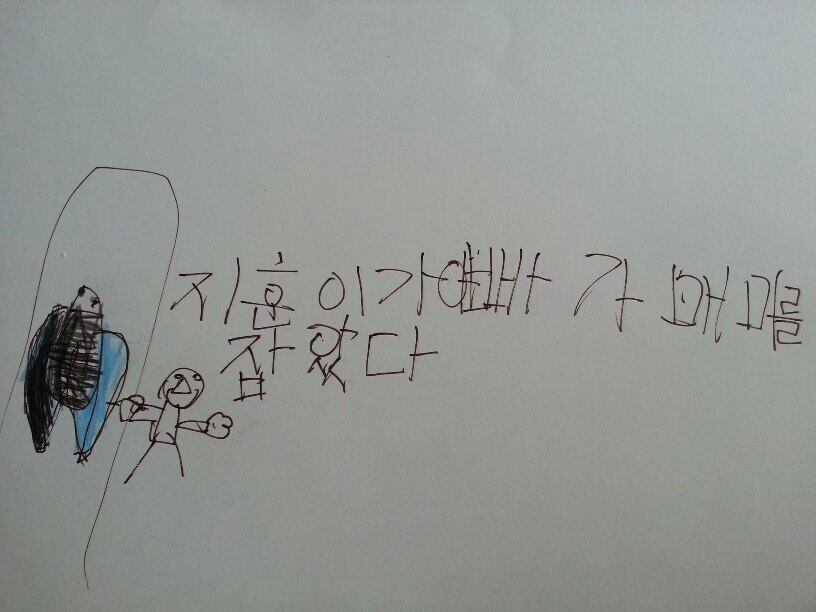 지훈이가 가 매미를
잡았다